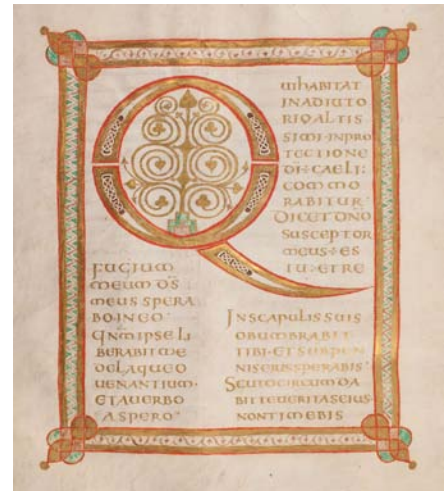 Q
UIHABITAT
INADIUTO
RIOALTIS
SIMI·INPRO
TECTIONE
DI CAELI:
COMMO
RABITUR·
DICETDNO
SUSCEPTOR
MEUS·ES
TU·ETRE
FUGIUM
MEUM DS
MEUS SPERA
BO·INEO·
QNMIPSE LI
BERABITME
DELAQUEO
UENANTIUM·
ETAUERBO
ASPERO·
INSCAPULISSUIS
OBUMBRABIT
TIBI·ETSUBPEN
NISEIUSSPERABIS·
SCUTOCIRCUMDA
BITTEUERITASEIUS·
NONTIMEBIS